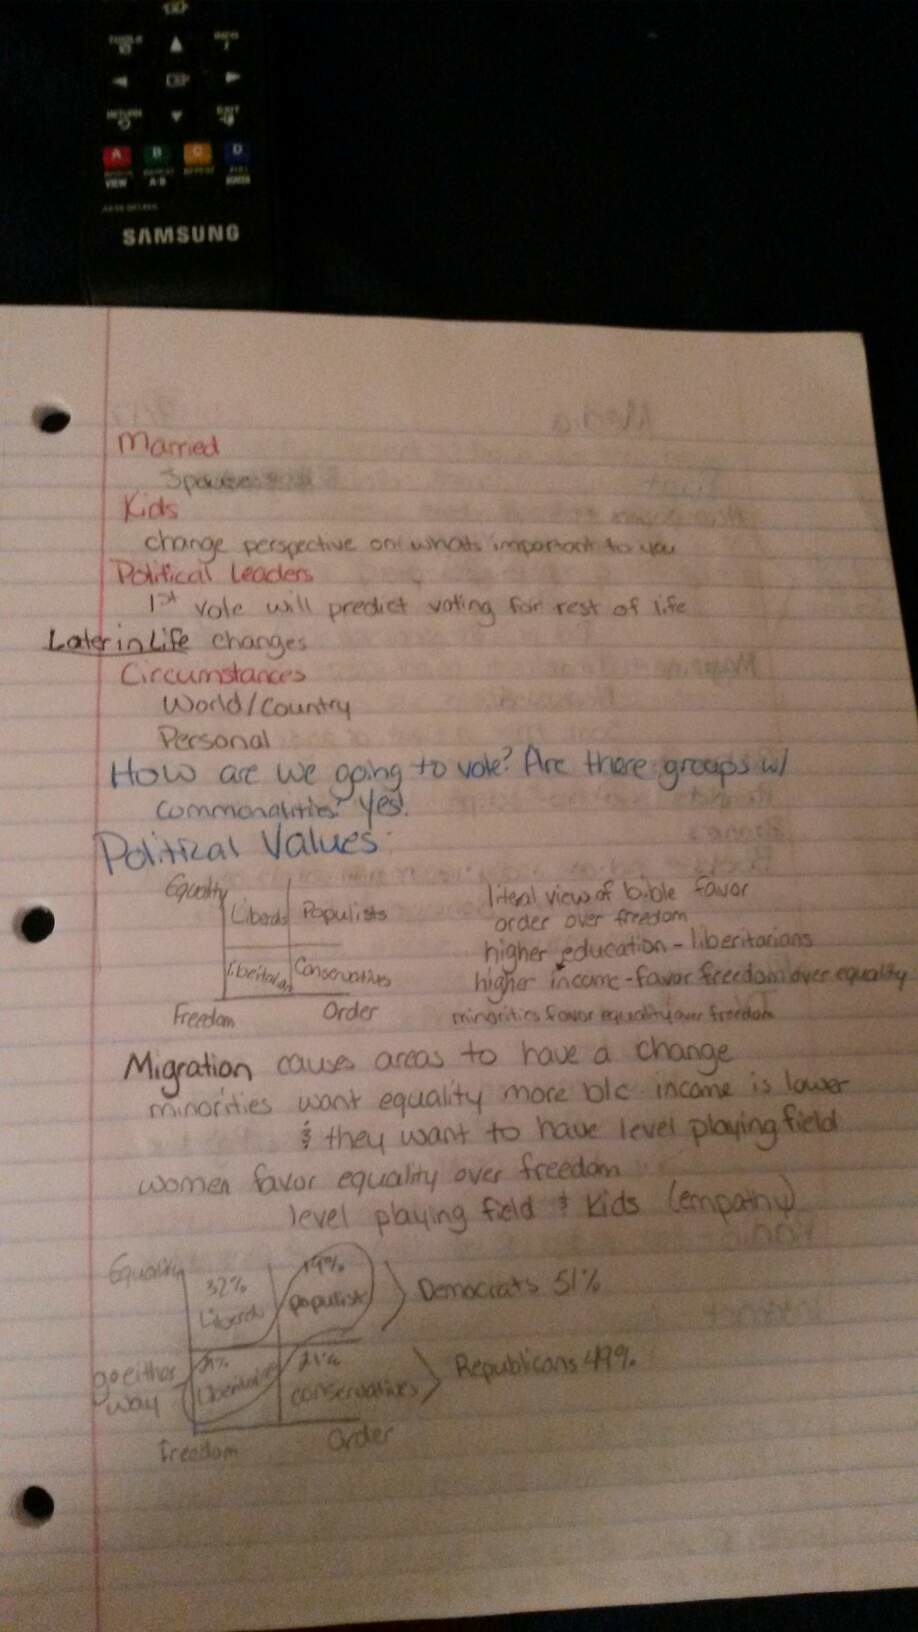 TOOLS
INFO
RETURN
EXIT
A B C D
VIEW A-B REPEAT
SAMSUNG
Media
Married
Spouse
Kids
change perspective on whats important to you
Political Leaders
1st vote will predict voting for rest of life
Later in Life changes
Circumstances
World/Country
Personal
How are we going to vote? Are there groups w/
commonalities? Yes!
Political Values:
Equality
Liberals Populists
Libertarian Conservatives
Freedom Order
literal view of bible favor
order over freedom
higher education - liberitarians
higher income - favor freedom over equality
minorities favor equality over freedom
Migration causes areas to have a change
minorities want equality more b/c income is lower
& they want to have level playing field
women favor equality over freedom
level playing field & kids (empathy)
Equality
32% 19%
Liberals populist
Democrats 51%
go either
way
21%
conservatives
Republicans 49%
Freedom Order